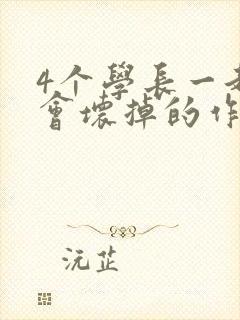 4个學長一
會壞掉的作
沅芷